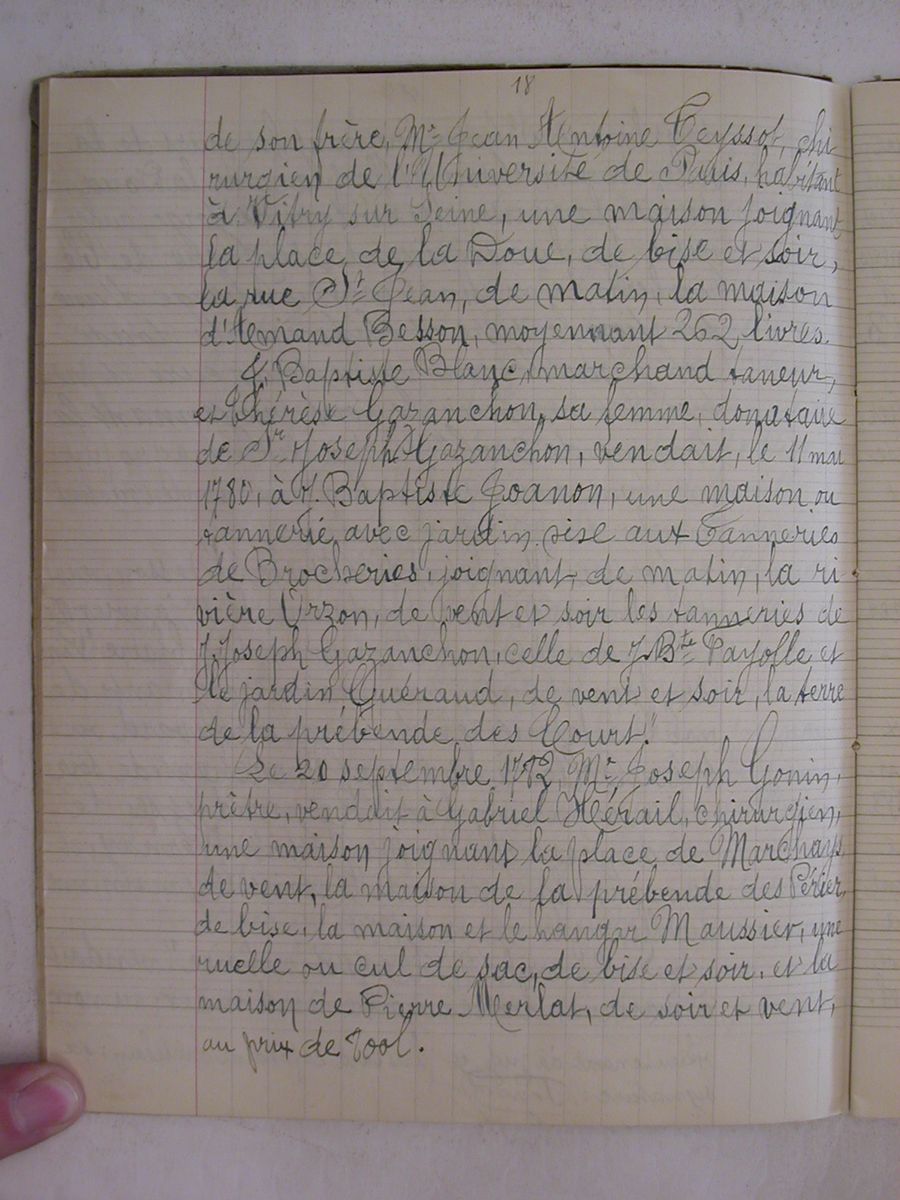 18
de son frère, Mr Jean Antoine Teyssot, chi
rurgien de l'Université de Paris, habitant
à Vitry sur Seine, une maison joignant
la place de la Doue, de bise et soir,
la rue St Jean, de matin, la maison
d'Armand Besson, moyennant 262 livres.
J. Baptiste Blanc, marchand taneur,
et Thérèse Gazanchon, sa femme, donataire
de Sr Joseph Gazanchon, vendait, le 11 mai
1780, à J. Baptiste Joanon, une maison ou
tannerie avec jardin sise aux Tanneries
de Brocheries, joignant, de matin, la ri
vière Orzon, de vent et soir les tanneries de
J. Joseph Gazanchon, celle de J. Bte Payolle et
le jardin Guéraud, de vent et soir, la terre
de la prébende des Court.
Le 20 septembre 1782 Mr Joseph Gonin,
prêtre, vendait à Gabriel Hérail, chirurgien,
une maison joignant la place de Marchays
de vent, la maison de la prébende des Périer,
de bise, la maison et le hangar Maussier, une
ruelle ou cul de sac, de bise et soir, et la
maison de Pierre Merlat, de soir et vent,
au prix de